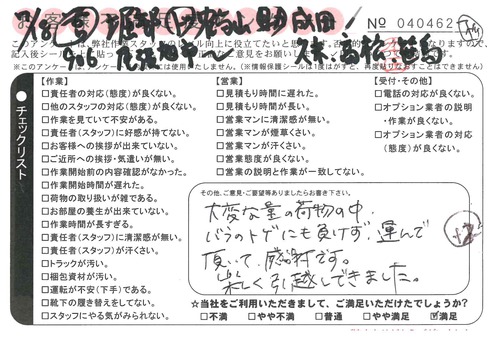 No 040462
【作業】
□責任者の対応(態度)が良くない。
□他のスタッフの対応(態度)が良くない。
□作業を見ていて不安がある。
□責任者(スタッフ)に好感が持てない。
□お客様への挨拶が出来ていない。
□ご近所への挨拶・気遣いが無い。
□作業開始前の内容確認がなかった。
□作業開始時間が遅れた。
□荷物の取り扱いが雑である。
□お部屋の養生が出来ていない。
□作業時間が長すぎる。
□責任者(スタッフ)に清潔感が無い。
□責任者(スタッフ)が汗くさい。
□トラックが汚い。
□梱包資材が汚い。
□運転が不安(下手)である。
□靴下の履き替えをしてない。
□スタッフにやる気がみられない。
【営業】
□見積もり時間に遅れた。
□見積もり時間が長い。
□営業マンに清潔感が無い。
□営業マンが煙草くさい。
□営業マンが汗くさい。
□営業態度が良くない。
□営業の説明と作業が一致してない。
【受付・その他】
□電話の対応が良くない。
□オプション業者の説明
・作業が良くない。
□オプション業者の対応
(態度)が良くない。
チェックリスト
その他、ご意見・ご要望等ありましたらお書き下さい。
大変な量の荷物の中、
バラのトゲにも負けず、運んで
頂いて、感謝です。
楽しく引越しできました。
+2
☆当社をご利用いただきまして、ご満足いただけたでしょうか?
□不満 □やや不満 □普通 □やや満足 ☑満足